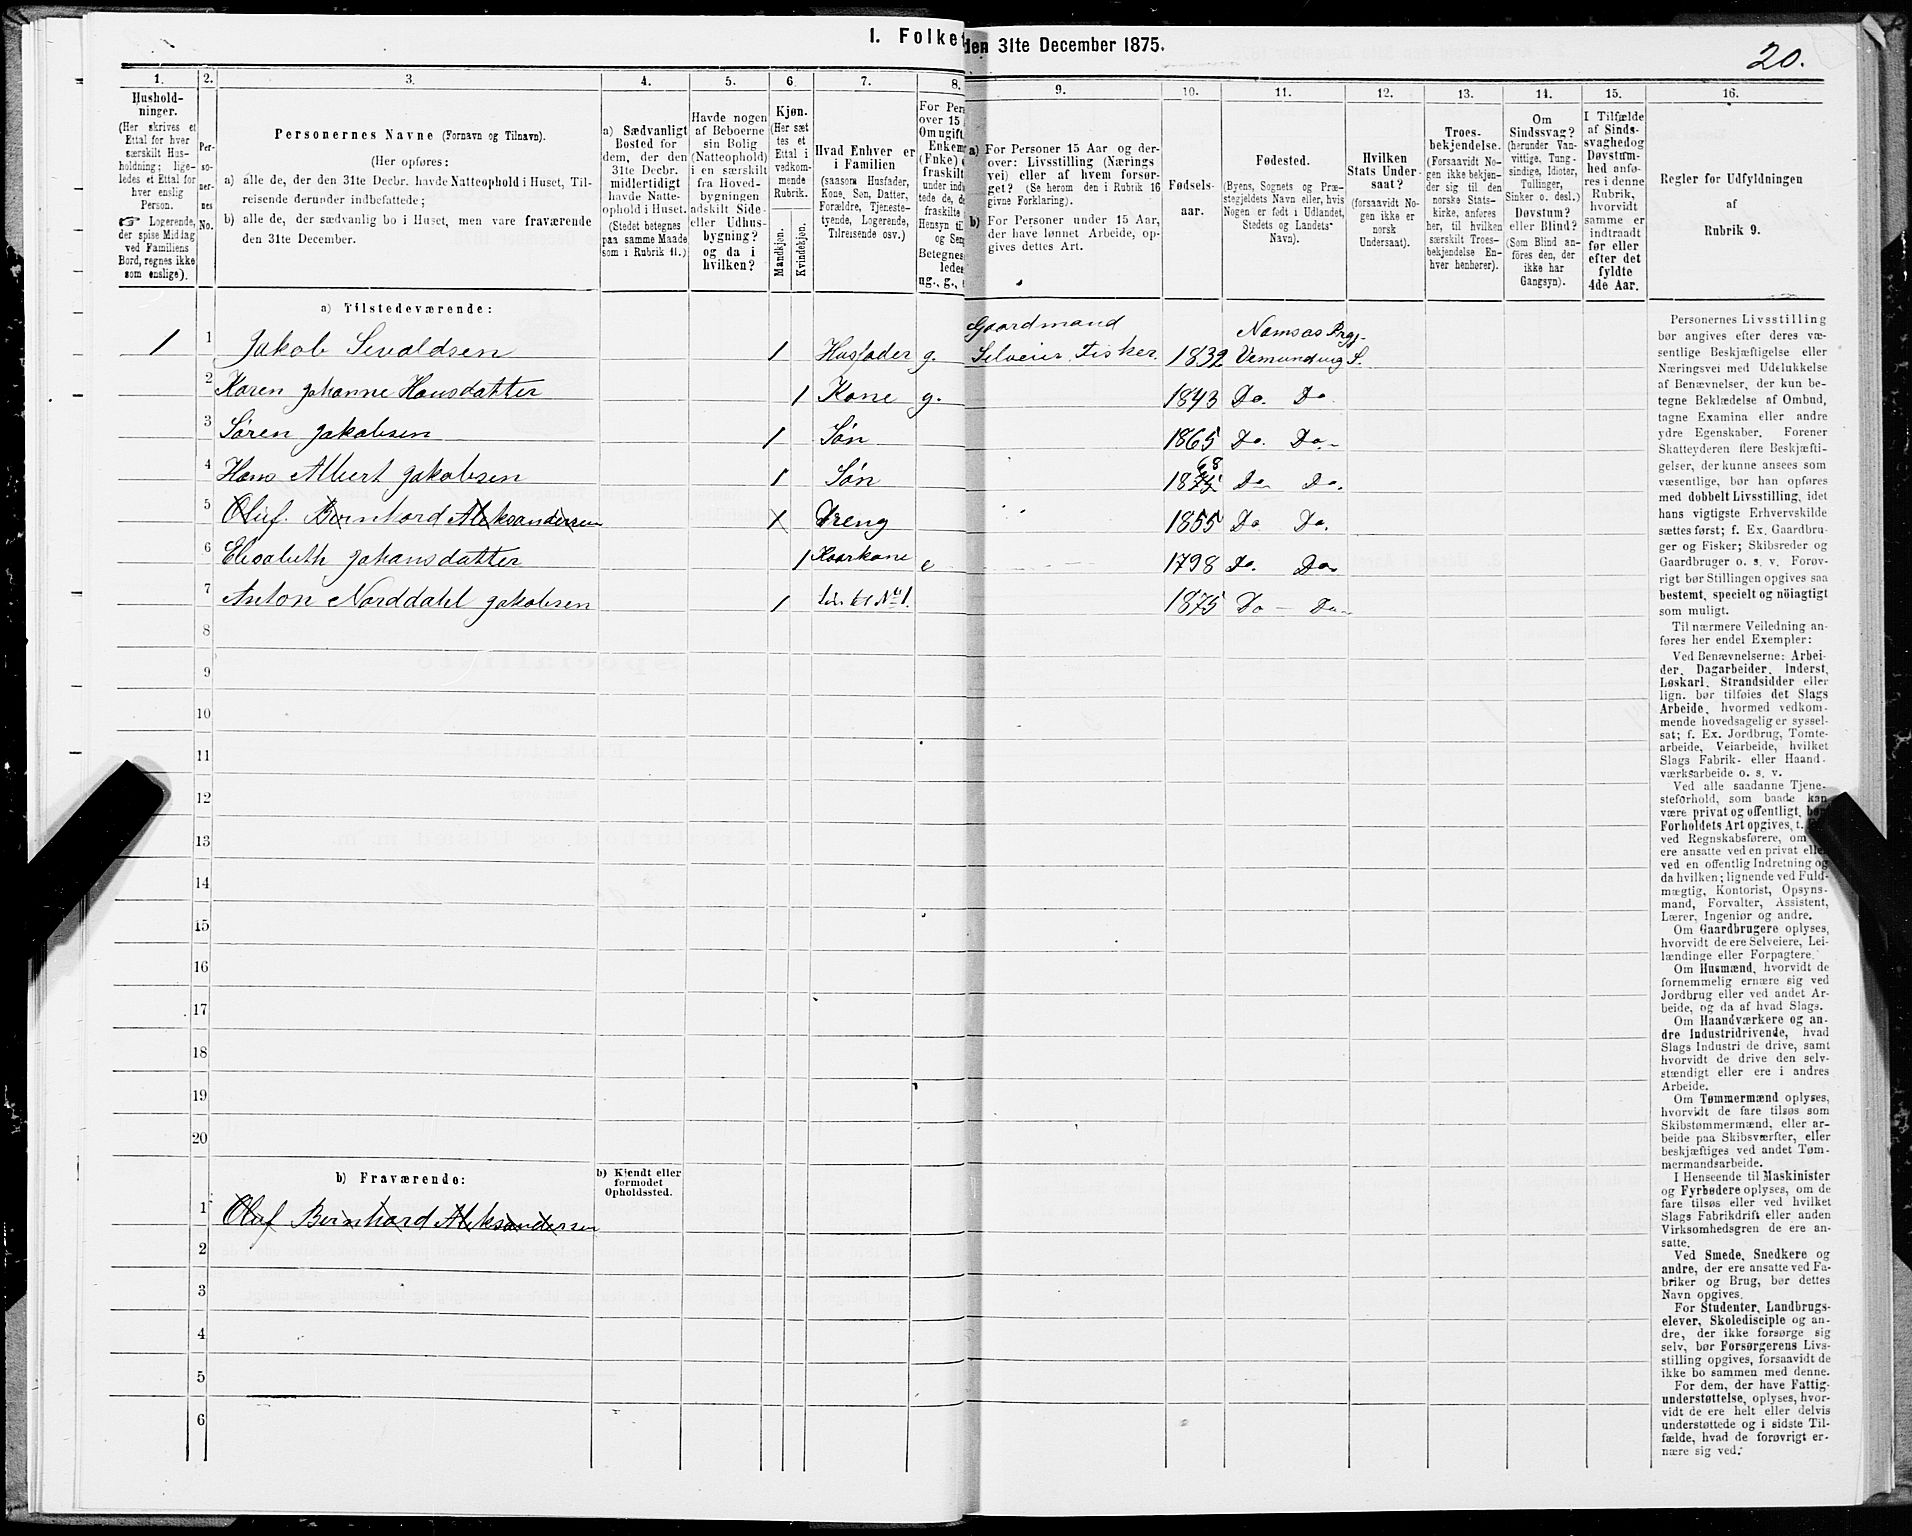 I. Folket
den 31te December 1875.
20.
1.
2.
3.
4.
5.
6
7.
8.
9.
10.
11.
12.
13.
14.
15.
16.
Hushold-
ninger.
(Her skrives et
Ettal for hver
særskilt Hus-
holdning; lige-
ledes et Ettal for
hver enslig
Person.
☞ Logerende,
der spise Middag
ved Familiens
Bord, regnes ikke
som enslige).
Per-
so-
ner-
nes
No.
Personernes Navne (Fornavn og Tilnavn).
(Her opføres:
a) alle de, der den 31te Decbr. havde Natteophold i Huset, Til-
reisende derunder indbefattede;
b) alle de, der sædvanlig bo i Huset, men vare fraværende
den 31te December.
a) Sædvanligt
Bosted for
dem, der den
31te Decbr.
midlertidigt
havde Natte-
ophold i Huset.
(Stedet betegnes
paa samme Maade
som i Rubrik 11.)
Havde nogen
af Beboerne
sin Bolig
(Natteophold)
i en særskilt
fra Hoved-
bygningen
adskilt Side-
eller Udhus-
bygning?
og da i
hvilken?
Kjøn.
(Her sæt
tes et
Ettal i
vedkom-
mende
Rubrik.
Mandkjøn.
Kvindekjøn.
Hvad Enhver er
i Familien
(saasom Husfader,
Kone, Søn, Datter,
Forældre, Tjeneste-
tyende, Logerende,
Tilreisende osv.)
For Per
over 15
Om ugift
Enkem
(Fnke) e
fraskilt
under ind
tede de, d
fraskilte
Hensyn ti
og Sen
Betegnes
lede
ug., g., e
a) For Personer 15 Aar og der-
over: Livsstilling (Nærings
vei) eller af hvem forsør-
get? (Se herom den i Rubrik 16
givne Forklaring).
b) For Personer under 15 Aar,
der have lønnet Arbeide, op-
gives dettes Art.
Fødsels-
aar.
Fødested.
(Byens, Sognets og Præ-
stegjeldets Navn eller, hvis
Nogen er født i Udlandet,
Stedets og Landets
Navn).
Hvilken
Stats Under-
saat?
(forsaavidt No-
gen ikke er
norsk
Undersaat).
Troes-
bekjendelse.
(Forsaavidt No-
gen ikke bekjen-
der sig til den
norske Stats-
kirke, anføres
her, til hvilken
særskilt Troes-
bekjendelse En-
hver henhører).
Om
Sindssvag?
(herunder Van-
vittige, Tung-
sindige, Idioter,
Tullinger,
Sinker o. desl.)
Døvstum?
eller Blind?
(Som Blind an-
føres den, der
ikke har
Gangsyn).
I Tilfælde
af Sinds-
svaghedog
Døvstum-
hed anfø-
res i denne
Rubrik,
hvorvidt
samme er
indtraadt
før eller
efter det
fyldte
4de Aar.
Regler for Udfyldningen
af
Rubrik 9.
a) Tilstedeværende:
1 1 Jakob Sivaldsen 1 Husfader g. Gaardmand Selveier, Fisker. 1832 Namsos Prgj. Vemundvig S.
2 Karen Johanne Hansdatter 1 Kone g. 1843 Do. Do
3 Søren Jakobsen 1 Søn 1865 Do. Do-
4 Hans Albert Jakobsen 1 Søn 1875 68 Do Do.
5 Oluf. Bernhard Aleksandersen 1 Dreng 1855 Do Do.
6 Elisabeth Johansdatter 1 Kaarkone e 1798 Do. Do
7 Anton Norddahl Jakobsen 1 Søn til No 1. 1875 Do - Do-
8
9
10
11
12
13
14
15
16
17
18
19
20
b) Fraværende:
b) Kjendt eller
formodet
Opholdssted.
1 Olaf Bernhard Aleksandersen
2
3
4
5
6
Personernes Livsstilling
bør angives efter deres væ-
sentlige Beskjæftigelse eller
Næringsvei med Udelukkelse
af Benævnelser, der kun be-
tegne Beklædelse af Ombud,
tagne Examina eller andre
ydre Egenskaber. Forener
Skatteyderen flere Beskjæfti-
gelser, der kunne ansees som
væsentlige, bør han opføres
med dobbelt Livsstilling, idet
hans vigtigste Erhvervskilde
sættes først; f. Ex. Gaardbru-
ger og Fisker; Skibsreder og
Gaardbruger o. s. v. Forøv-
rigt bør Stillingen opgives saa
bestemt, specielt og nöiagtigt
som muligt.
Til nærmere Veiledning an-
føres her endel Exempler:
Ved Benævnelserne: Arbei-
der, Dagarbeider, Inderst,
Løskarl, Strandsidder eller
lign. bør tilføies det Slags
Arbeide, hvormed vedkom-
mende hovedsagelig er syssel-
sat; f. Ex. Jordbrug, Tomte-
arbeide, Veiarbeide, hvilket
Slags Fabrik- eller Haand-
værksarbeide o. s. v.
Ved alle saadanne Tjene-
steforhold, som baade kan
være privat og offentligt, bør
Forholdets Art opgives, t.
ved Regnskabsførere, om
ere ansatte ved en privat eller
ved en offentlig Indretning og
da hvilken; lignende ved Fuld-
mægtig, Kontorist, Opsyns-
mand, Forvalter, Assistent,
Lærer, Ingeniør og andre.
Om Gaardbrugere oplyses,
hvorvidt de ere Selveiere, Lei-
lændinge eller Forpagtere.
Om Husmænd, hvorvidt de
fornemmelig ernære sig ved
Jordbrug eller ved andet Ar-
beide, og da af hvad Slags.
Om Haandværkere og an-
dre Industridrivende, hvad
Slags Industri de drive, samt
hvorvidt de drive den selv-
stændigt eller ere i andres
Arbeide.
Om Tømmermænd oplyses,
hvorvidt de fare tilsøs som
Skibstømmermænd, eller ar-
beide paa Skibsværfter, eller
beskjæftiges ved andet Tøm-
mermandsarbeide.
I Henseende til Maskinister
og Fyrbødere oplyses, om de
fare tilsøs eller ved hvilket
Slags Fabrikdrift eller anden
Virksomhedsgren de ere an-
satte.
Ved Smede, Snedkere og
andre, der ere ansatte ved Fa-
briker og Brug, bør dettes
Navn opgives.
For Studenter, Landbrugs-
elever, Skoledisciple og an-
dre, der ikke forsørge sig
selv, bør Forsørgerens Livs-
stilling opgives, forsaavidt de
ikke bo sammen med denne.
For dem, der have Fattig-
understøttelse, oplyses, hvor-
vidt de ere helt eller delvis
understøttede og i sidste Til-
fælde, hvad de forøvrigt er-
nære sig ved.